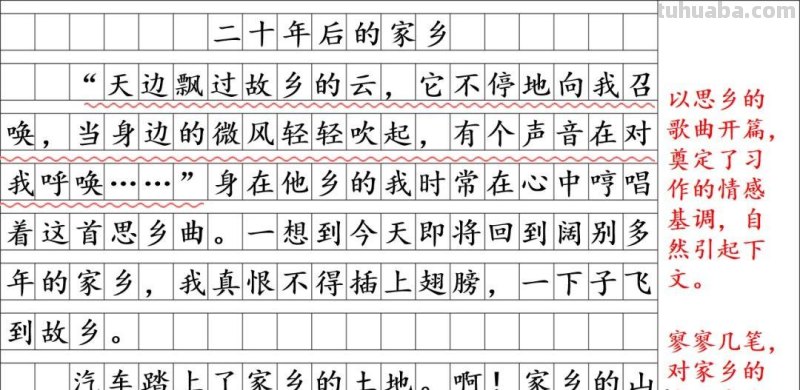 tuhuaba.com
二十年后的家乡
“天边飘过故乡的云，它不停地向我召
唤，当身边的微风轻轻吹起，有个声音在对
我呼唤……”身在他乡的我时常在心中哼唱
着这首思乡曲。一想到今天即将回到阔别多
年的家乡，我真恨不得插上翅膀，一下子飞
到故乡。
汽车踏上了家乡的土地。啊！家乡的山
以思乡的
歌曲开篇，
奠定了习
作的情感
基调，自
然引起下
文。
寥寥几笔，
对家乡的